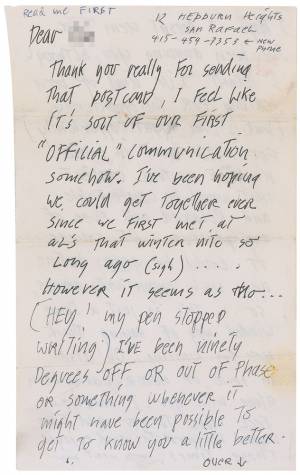 Read me FIRST
12 HEPBURN HEIGHTS
SAN RAFAEL
415-454-7353 ← NEW PHONE
Dear
Thank you really for sending
that postcard, I feel like
it's sort of our first
"OFFICIAL" communication
somehow. I've been hoping
we could get together ever
since we first met at
AL's that winter nite so
long ago (sigh) .....
However it seems as tho...
(HEY! my pen stopped
writing) I've been ninety
Degrees off or out of phase
or something whenever it
might have been possible to
get to know you a little better.
↓ OVER ↓